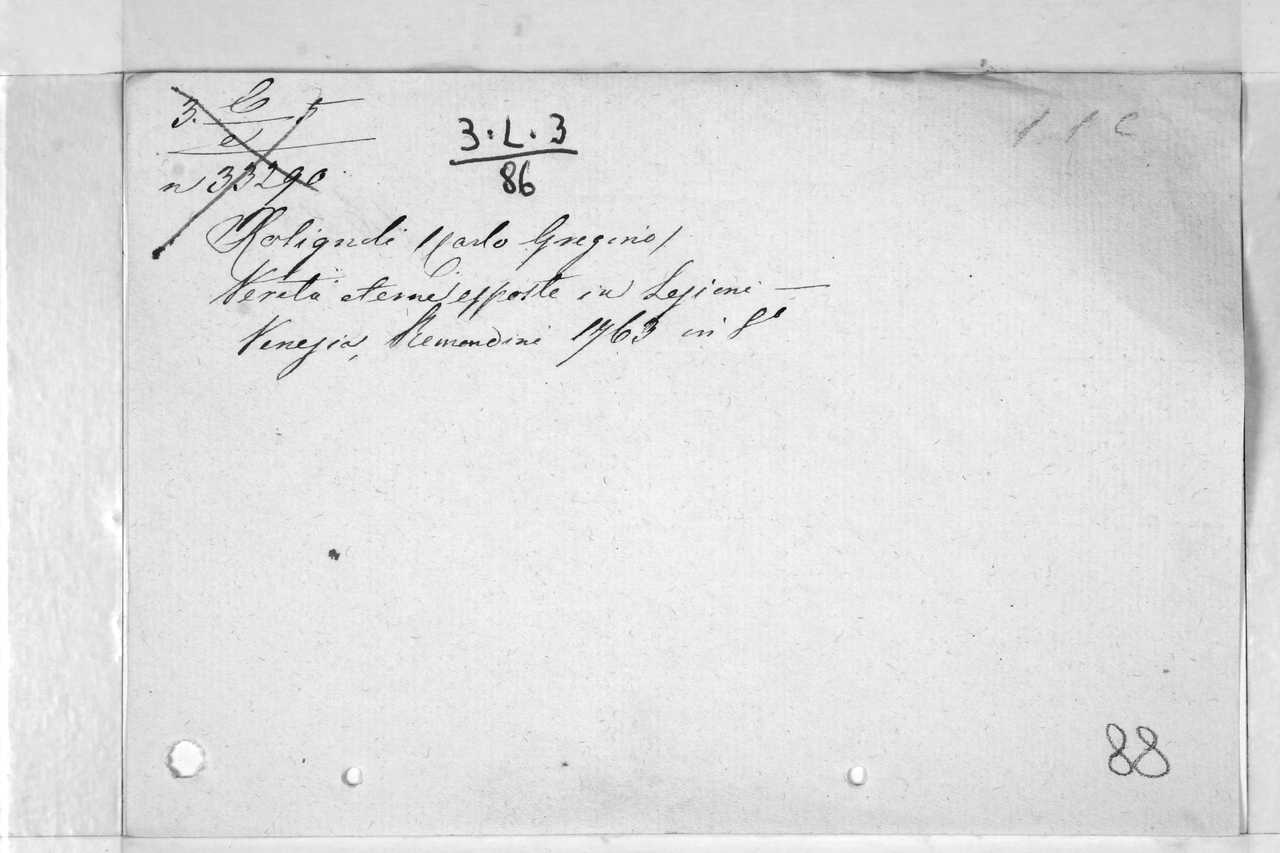 3. C 5
d
n 33290
3·L·3
86
Rosignoli (Carlo Gregorio)
Verità eterne esposte in Lezioni —
Venezia, Remondini 1763 in 8°
88